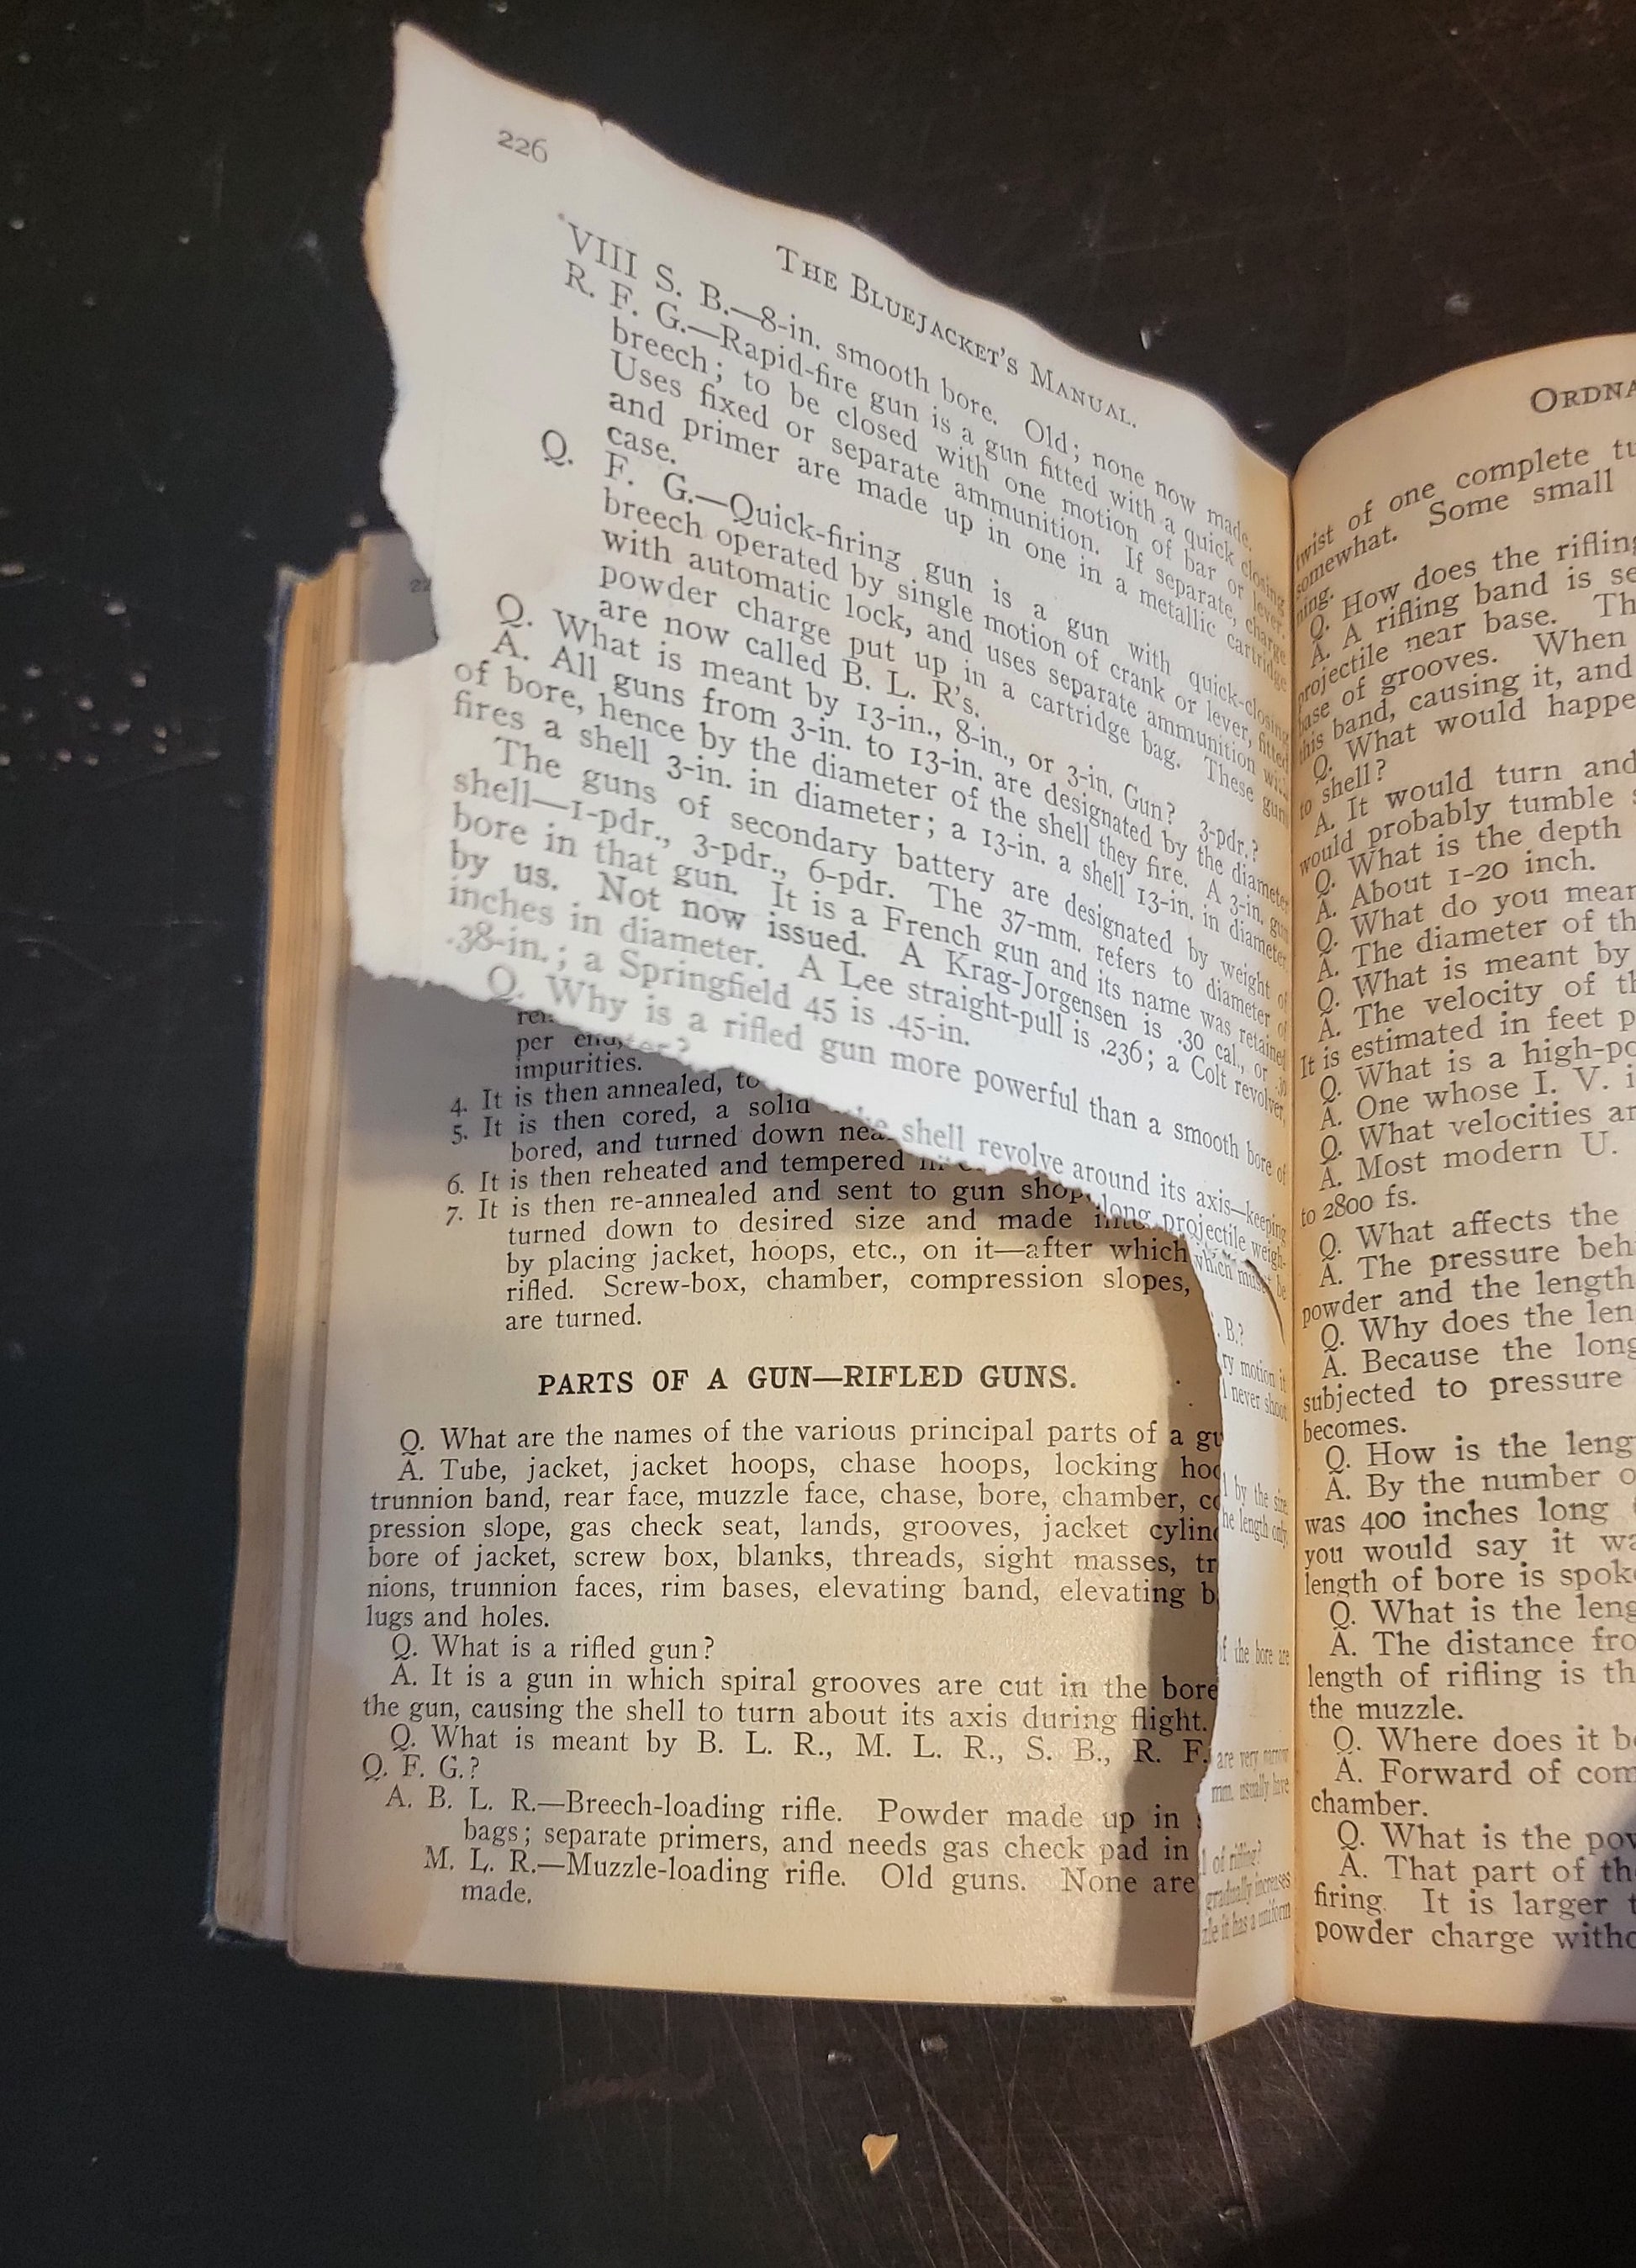 226
THE BLUEJACKET'S MANUAL.
VIII S. B.—8-in. smooth bore. Old; none now made.
R. F. G.—Rapid-fire gun is a gun fitted with a quick closing
breech; to be closed with one motion of bar or lever.
Uses fixed or separate ammunition. If separate, charge
and primer are made up in one in a metallic cartridge
case.
Q. F. G.—Quick-firing gun is a gun with quick-closing
breech operated by single motion of crank or lever, fitted
with automatic lock, and uses separate ammunition with
powder charge put up in a cartridge bag. These guns
are now called B. L. R's.
Q. What is meant by 13-in., 8-in., or 3-in. Gun? 3-pdr.?
A. All guns from 3-in. to 13-in. are designated by the diameter
of bore, hence by the diameter of the shell they fire. A 3-in. gun
fires a shell 3-in. in diameter; a 13-in. a shell 13-in. in diameter.
The guns of secondary battery are designated by weight of
shell—1-pdr., 3-pdr., 6-pdr. The 37-mm. refers to diameter of
bore in that gun. It is a French gun and its name was retained
by us. Not now issued. A Krag-Jorgensen is .30 cal., or .30
inches in diameter. A Lee straight-pull is .236; a Colt revolver,
.38-in.; a Springfield 45 is .45-in.
Q. Why is a rifled gun more powerful than a smooth bore of
shell revolve around its axis—keeping
long projectile weigh-
which must be
B.?
ry motion it
never shoot
by the size
he length only
f the bore are
are very narrow
mm. usually have
of rifling?
gradually increases
zle it has a uniform
per end,
impurities.
4. It is then annealed, to
5. It is then cored, a solid
bored, and turned down nea
6. It is then reheated and tempered
7. It is then re-annealed and sent to gun shop
turned down to desired size and made
by placing jacket, hoops, etc., on it—after which
rifled. Screw-box, chamber, compression slopes,
are turned.
PARTS OF A GUN—RIFLED GUNS.
Q. What are the names of the various principal parts of a gu
A. Tube, jacket, jacket hoops, chase hoops, locking hoo
trunnion band, rear face, muzzle face, chase, bore, chamber, co
pression slope, gas check seat, lands, grooves, jacket cylin
bore of jacket, screw box, blanks, threads, sight masses, tr
nions, trunnion faces, rim bases, elevating band, elevating b
lugs and holes.
Q. What is a rifled gun?
A. It is a gun in which spiral grooves are cut in the bore
the gun, causing the shell to turn about its axis during flight.
Q. What is meant by B. L. R., M. L. R., S. B., R. F.
Q. F. G.?
A. B. L. R.—Breech-loading rifle. Powder made up in
bags; separate primers, and needs gas check pad in
M. L. R.—Muzzle-loading rifle. Old guns. None are
made.
ORDNA
twist of one complete tu
somewhat. Some small
ning.
Q. How does the rifling
A. A rifling band is se
projectile near base. Th
base of grooves. When
this band, causing it, and
Q. What would happe
to shell?
A. It would turn and
would probably tumble
Q. What is the depth
A. About 1-20 inch.
Q. What do you mean
A. The diameter of th
Q. What is meant by
A. The velocity of th
It is estimated in feet p
Q. What is a high-po
A. One whose I. V. i
Q. What velocities ar
A. Most modern U.
to 2800 fs.
Q. What affects the
A. The pressure beh
powder and the length
Q. Why does the len
A. Because the long
subjected to pressure
becomes.
Q. How is the leng
A. By the number o
was 400 inches long
you would say it wa
length of bore is spoke
Q. What is the leng
A. The distance fro
length of rifling is th
the muzzle.
Q. Where does it b
A. Forward of com
chamber.
Q. What is the pow
A. That part of th
firing. It is larger t
powder charge witho